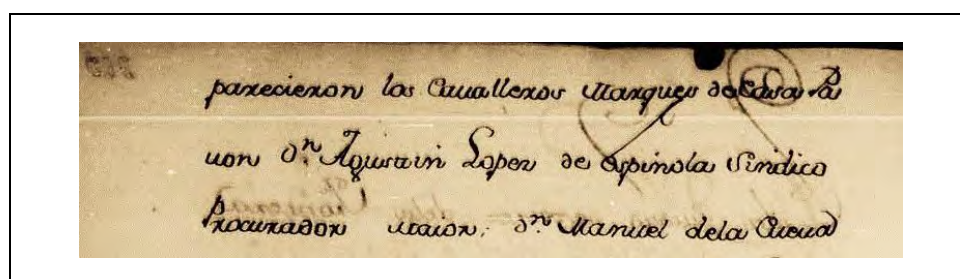 parecieron los Cavalleros Marques de Casa Pa
uon D.n Agustin Lopez de espinola Sindico
Procurador maior, D.n Manuel dela Cueua